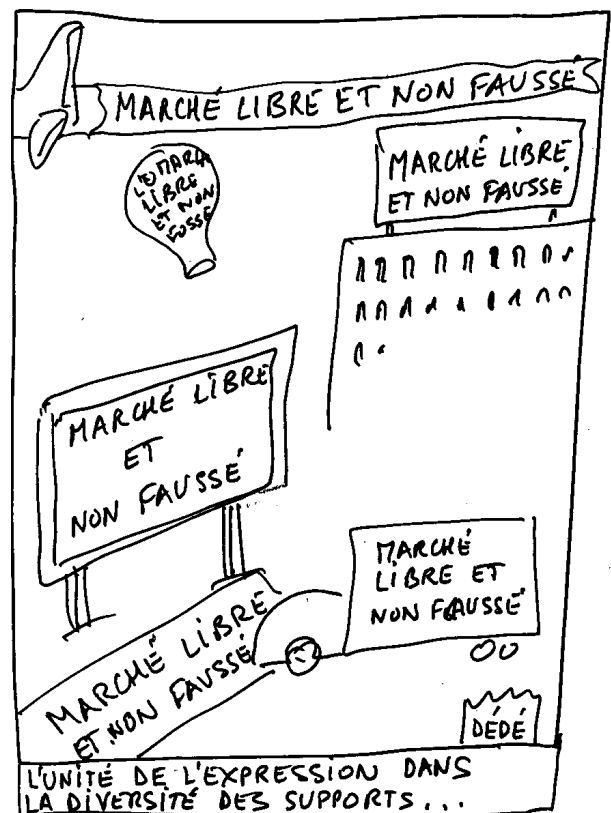 MARCHÉ LIBRE ET NON FAUSSÉ
LIBRE
ET NON
FOSSÉ
MARCHÉ LIBRE
ET NON FAUSSÉ
MARCHÉ LIBRE
ET
NON FAUSSÉ
MARCHÉ
LIBRE ET
NON FAUSSÉ
MARCHÉ LIBRE
ET NON FAUSSÉ
DÉDÉ
L'UNITÉ DE L'EXPRESSION DANS
LA DIVERSITÉ DES SUPPORTS...